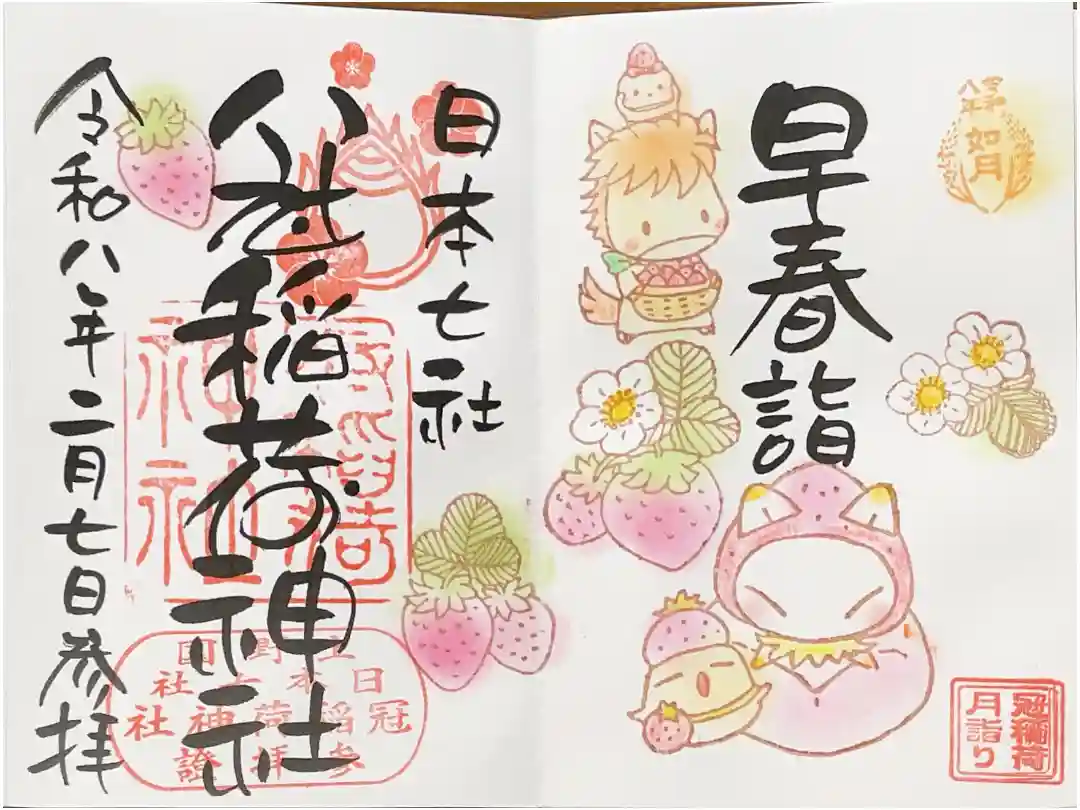 令和八年
如月
早春詣
冠稲荷
月詣り
日本七社
冠稲荷神社
令和八年二月七日参拝
上野國
日本七社
冠稲荷神社
参拝證